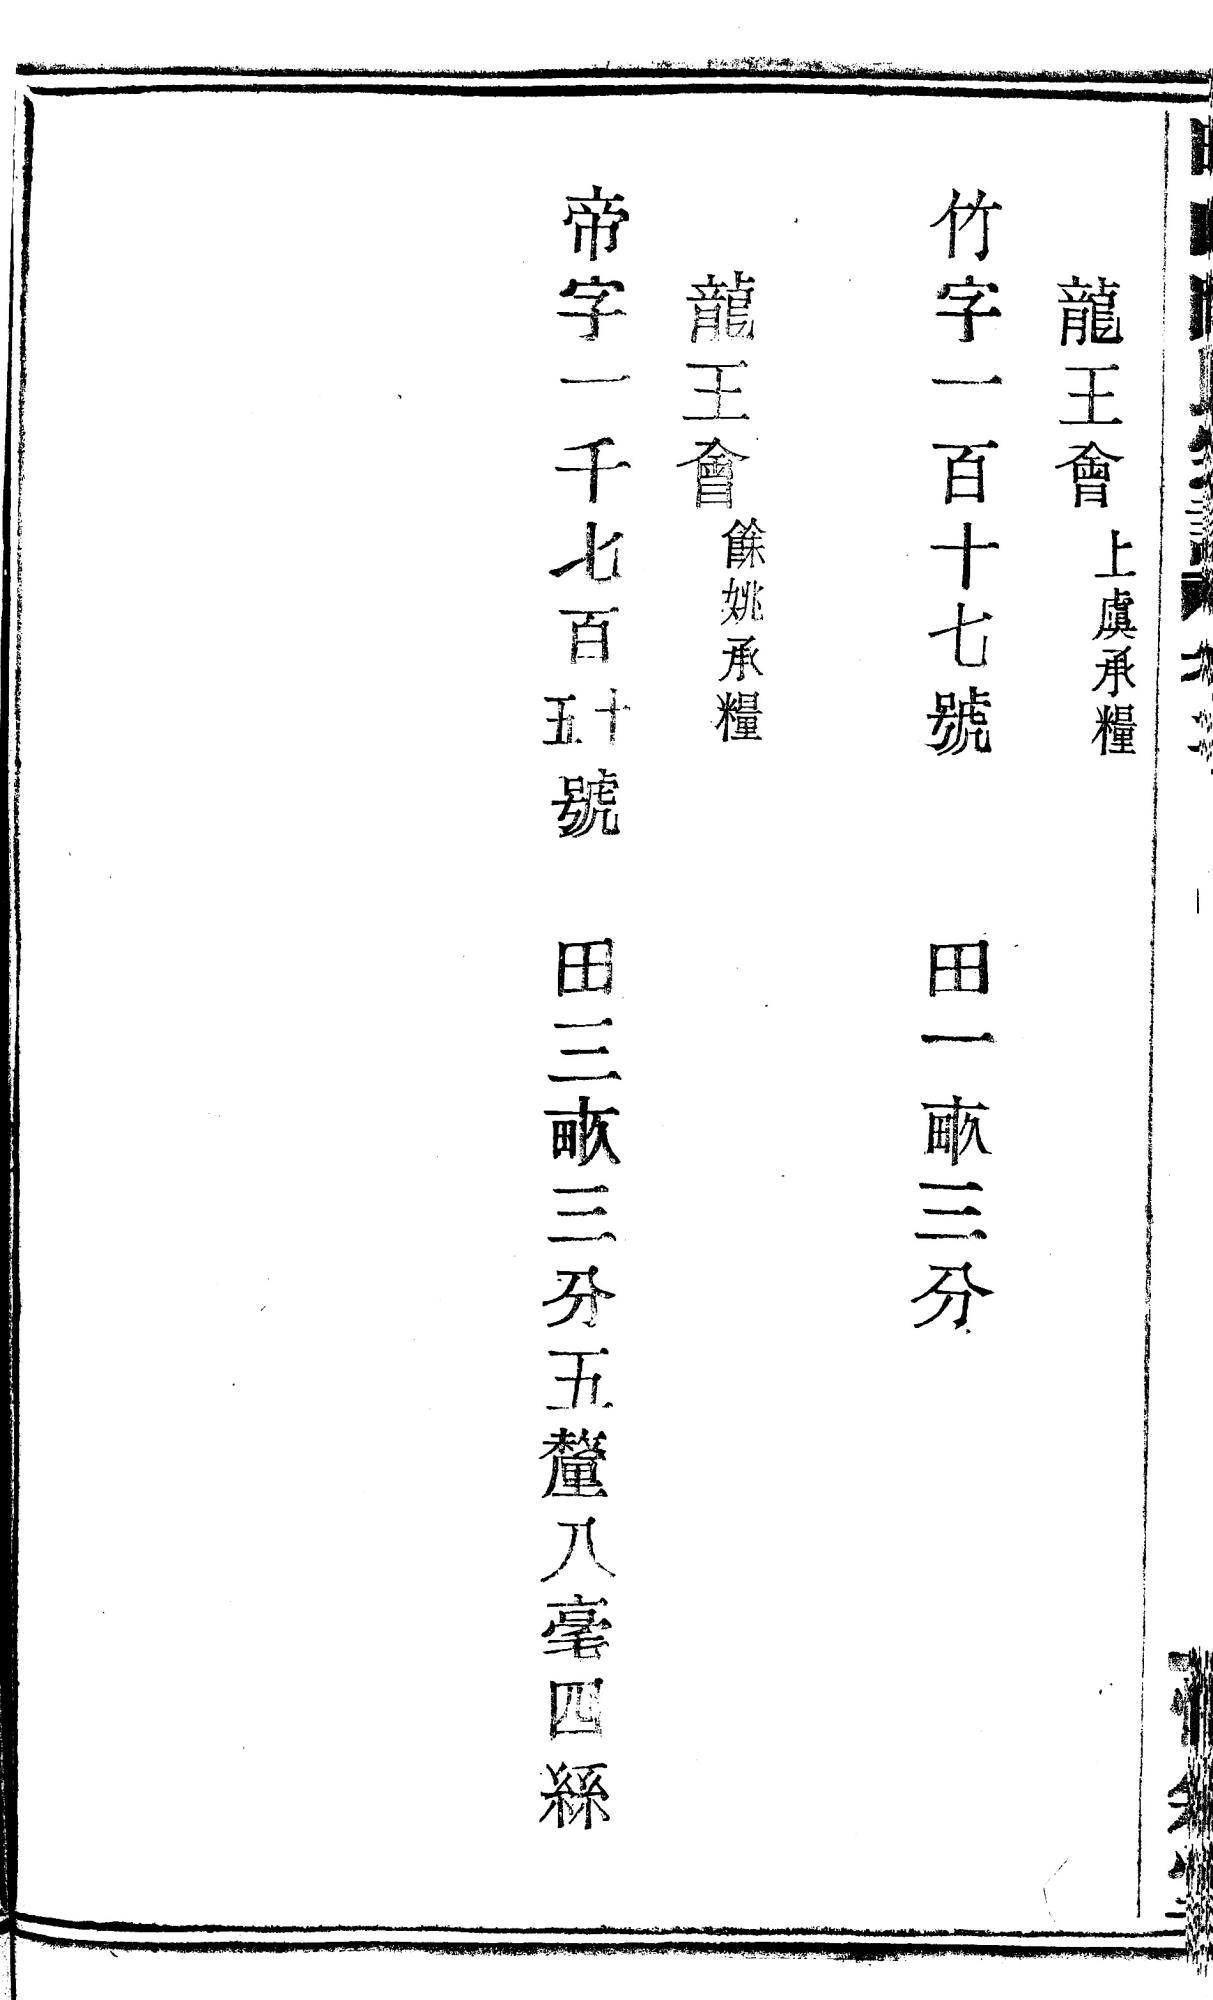 龍王會上虞承糧
竹字一百十七號　田一畝三分
龍王會餘姚承糧
帝字一千七百十五號　田三畝三分五釐八毫四絲